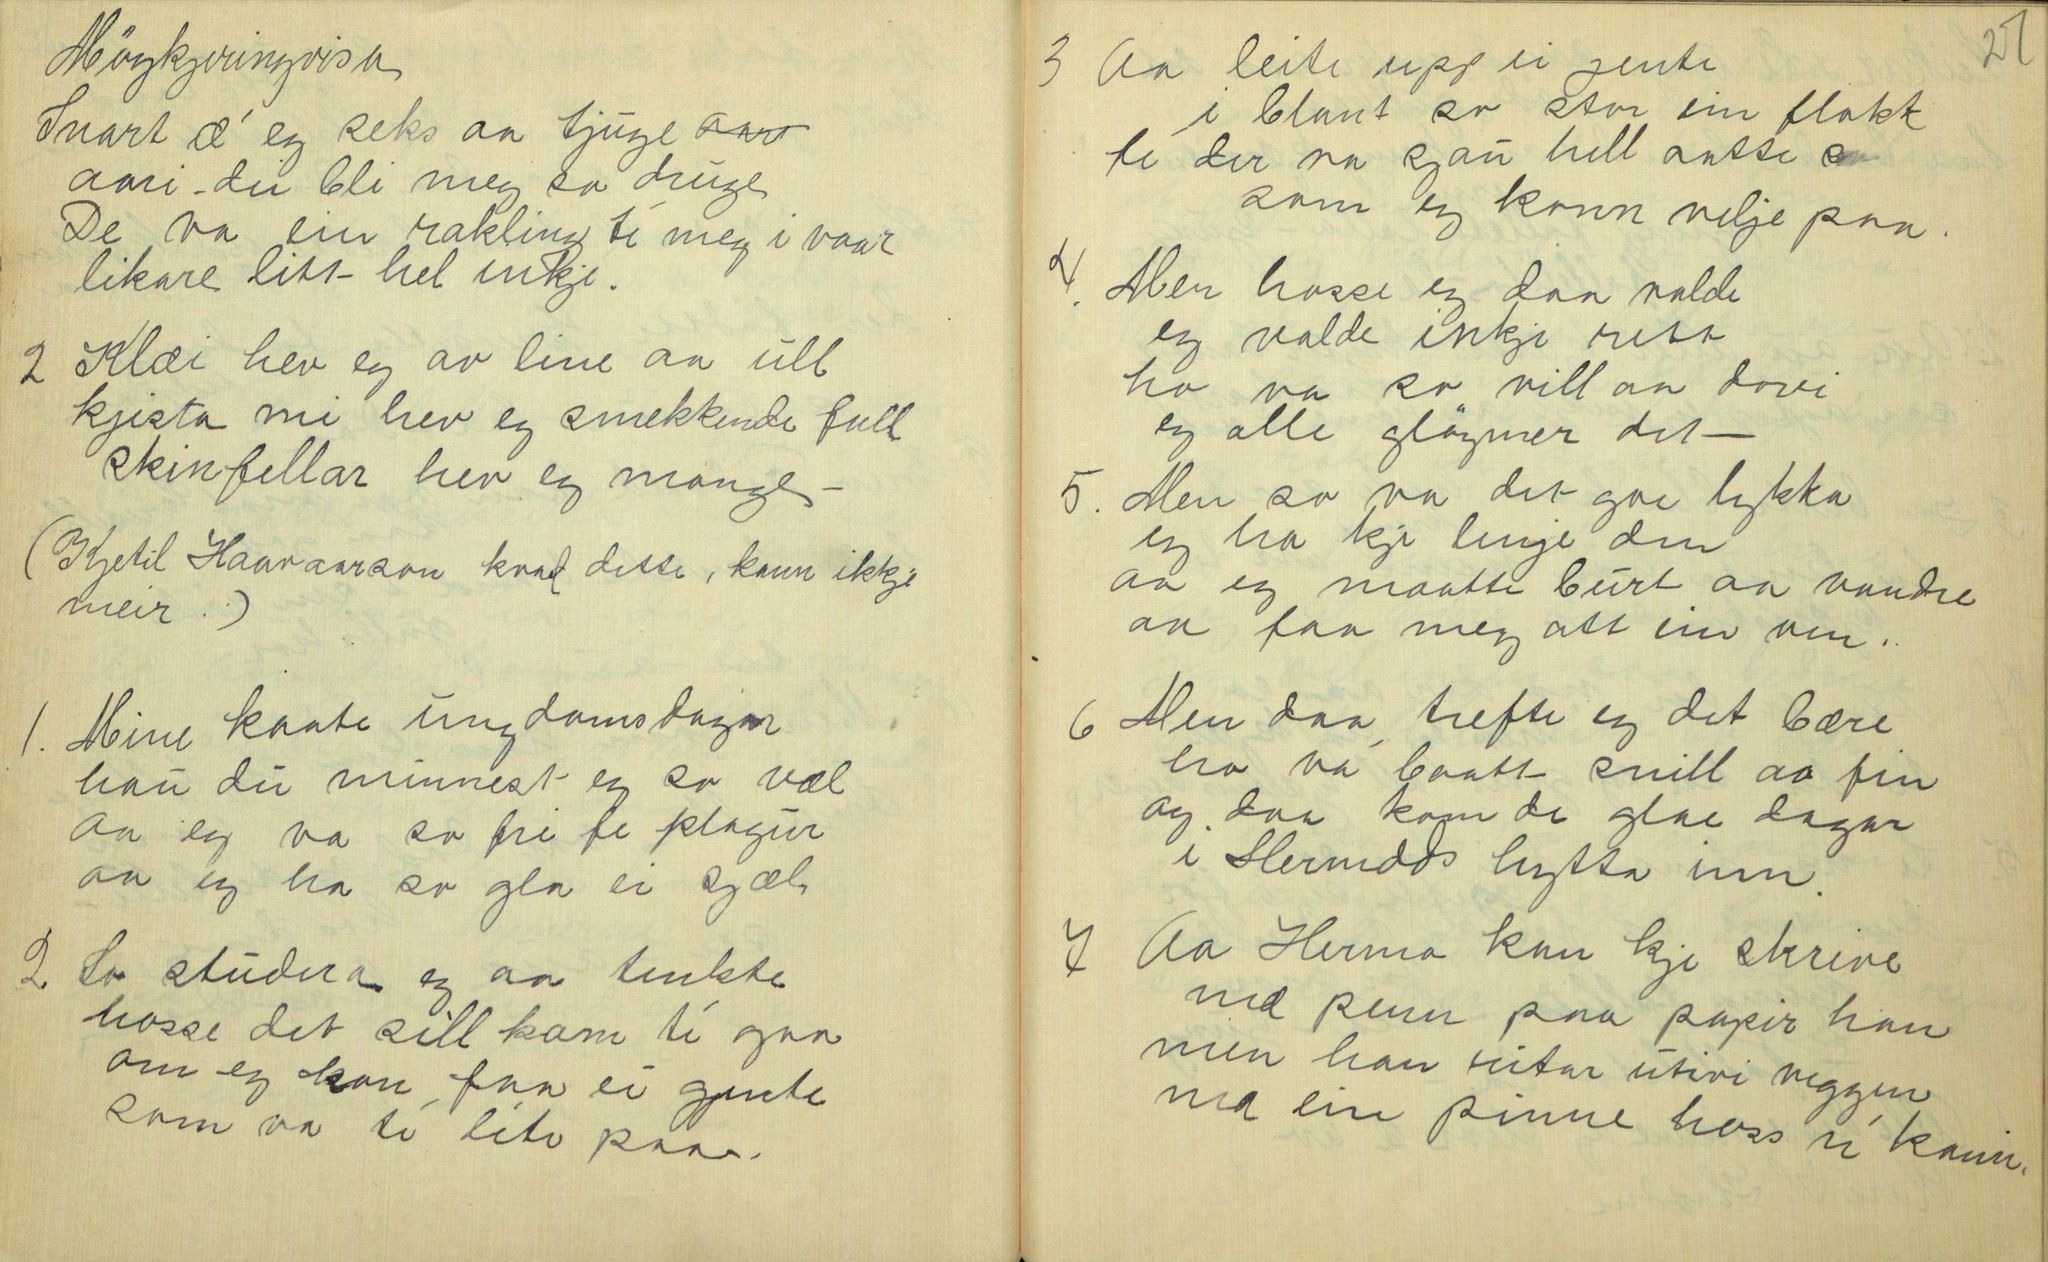 Möykjeringvisa
Snart æ' eg seks aa tjuge aar
aari - dei bli meg so druge
De va ein rakling ti meg i vaar
likare litt hel inkje.
2 Klæi hev eg av line aa ull
kjista mi hev eg smekkende full
skinfellar hev eg mange -
(Kjetil Haavaarson kvad dette, kann ikkje
meir.)
1. Mine kaate ungdomsdagar
hau du minnest eg so væl
aa eg va so fri fe plagur
aa eg ha so gla ei sjæl
2 So studera eg aa tenkte
hosse det sill kom ti gaa
om eg kon faa ei gjente
som va ti lite paa.
27
3 Aa leite upp ei jente
i blant so stor ein flokk
fe der va sjau hell aatte so
som eg konn velje paa.
4. Men hosse eg daa valde
eg valde inkje rett
ho va so vill aa dovi
eg alle gløymer det -
5. Men so va det goe lykka
eg ha kje lenje den
aa eg maatte burt aa vandre
aa faa meg att ein ven.
6 Men daa trefte eg det bære
ho va baatt snill aa fin
og daa kom de glae dagar
i Hermods hytta inn.
7 Aa Hermo kan kje skrive
mæ penn paa papir han
men han ritar utivi veggen
mæ ein pinne hoss 'n kann.